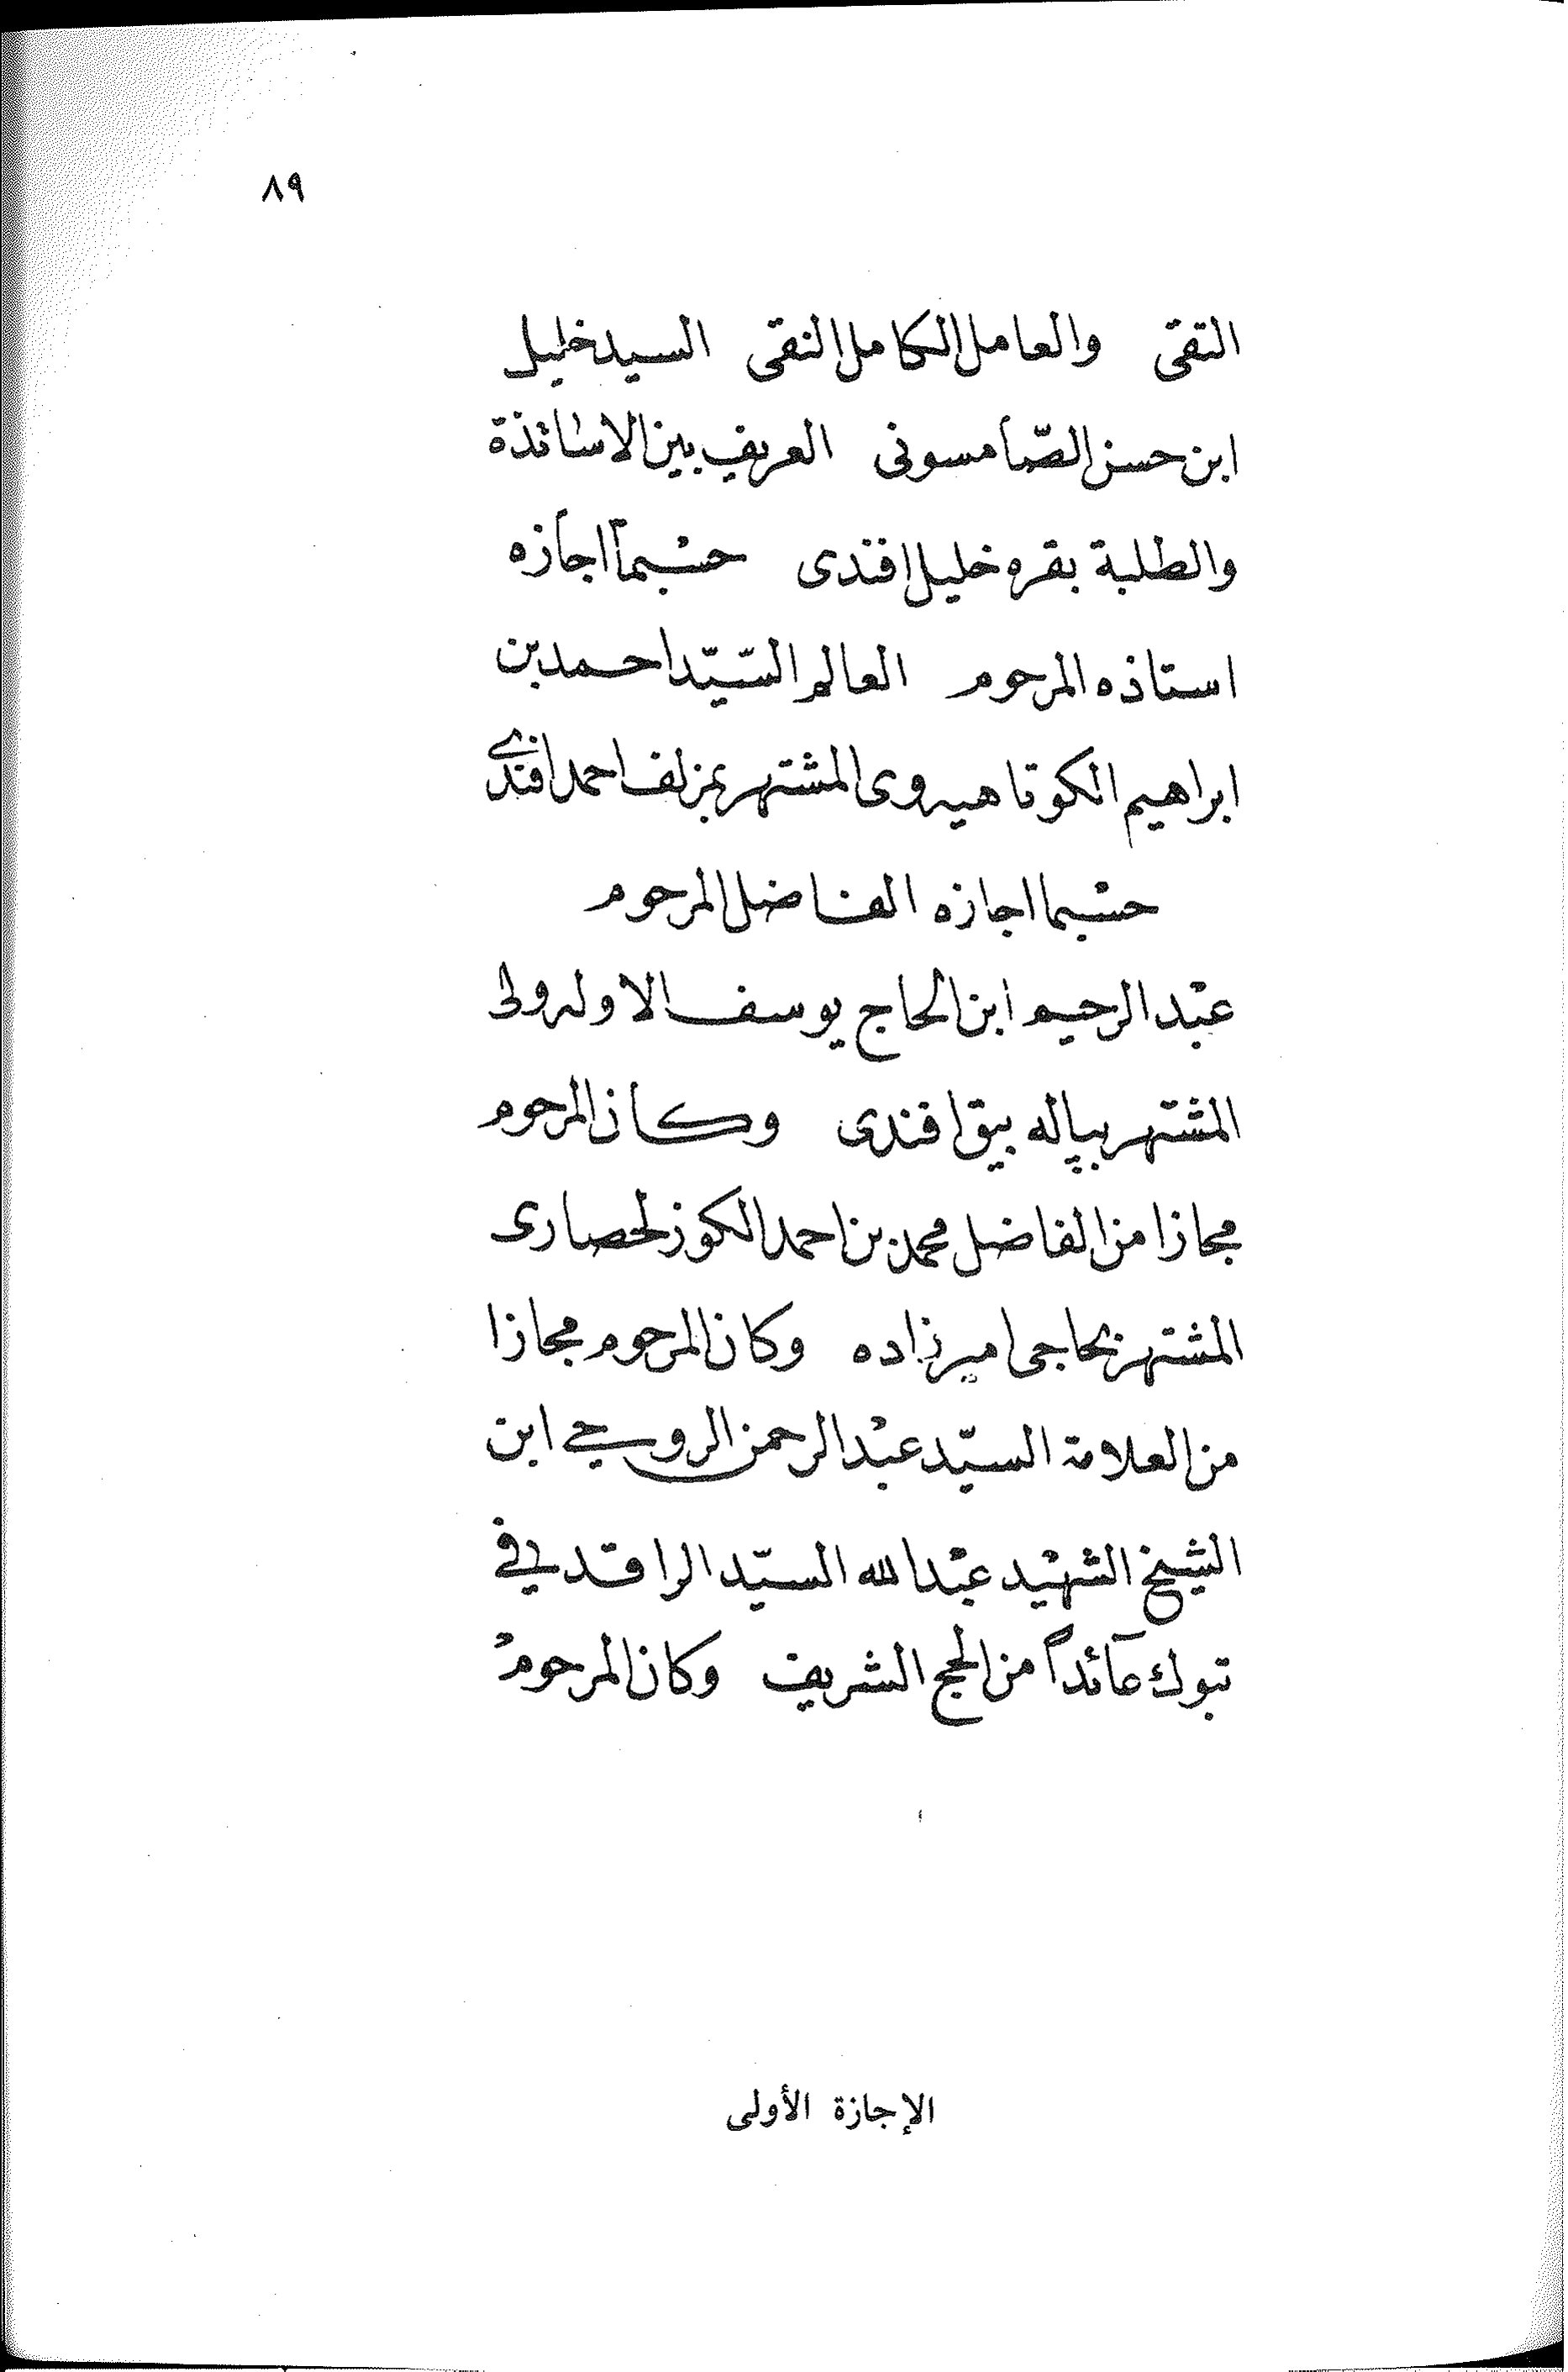 ٨٩
التقى والعامل الكامل النقى السيد خليل
ابن حسن الصّامسونى العريف بين الاساتذة
والطلبة بقره خليل افندى حسْبمآ اجازه
استاذه المرحوم العالم السّيّد احمد بن
ابراهيم الكوتاهيه وى المشتهر بمزلف احمد افندى
حسْبما اجازه الفاضل المرحوم
عبْد الرحيم ابن الحاج يوسف الاوله ولى
المشتهر بپاله بيق افندى وكان المرحوم
مجازا من الفاضل محمد بن احمد الكوزلحصارى
المشتهر بحاجى امير زاده وكان المرحوم مجازا
من العلامة السيّد عبْد الرحمن الروحى ابن
الشيخ الشهيْد عبْد الله السيّد الراقد فى
تبوك عآئداً من الحج الشريف وكان المرحومْ
الإجازة الأولى